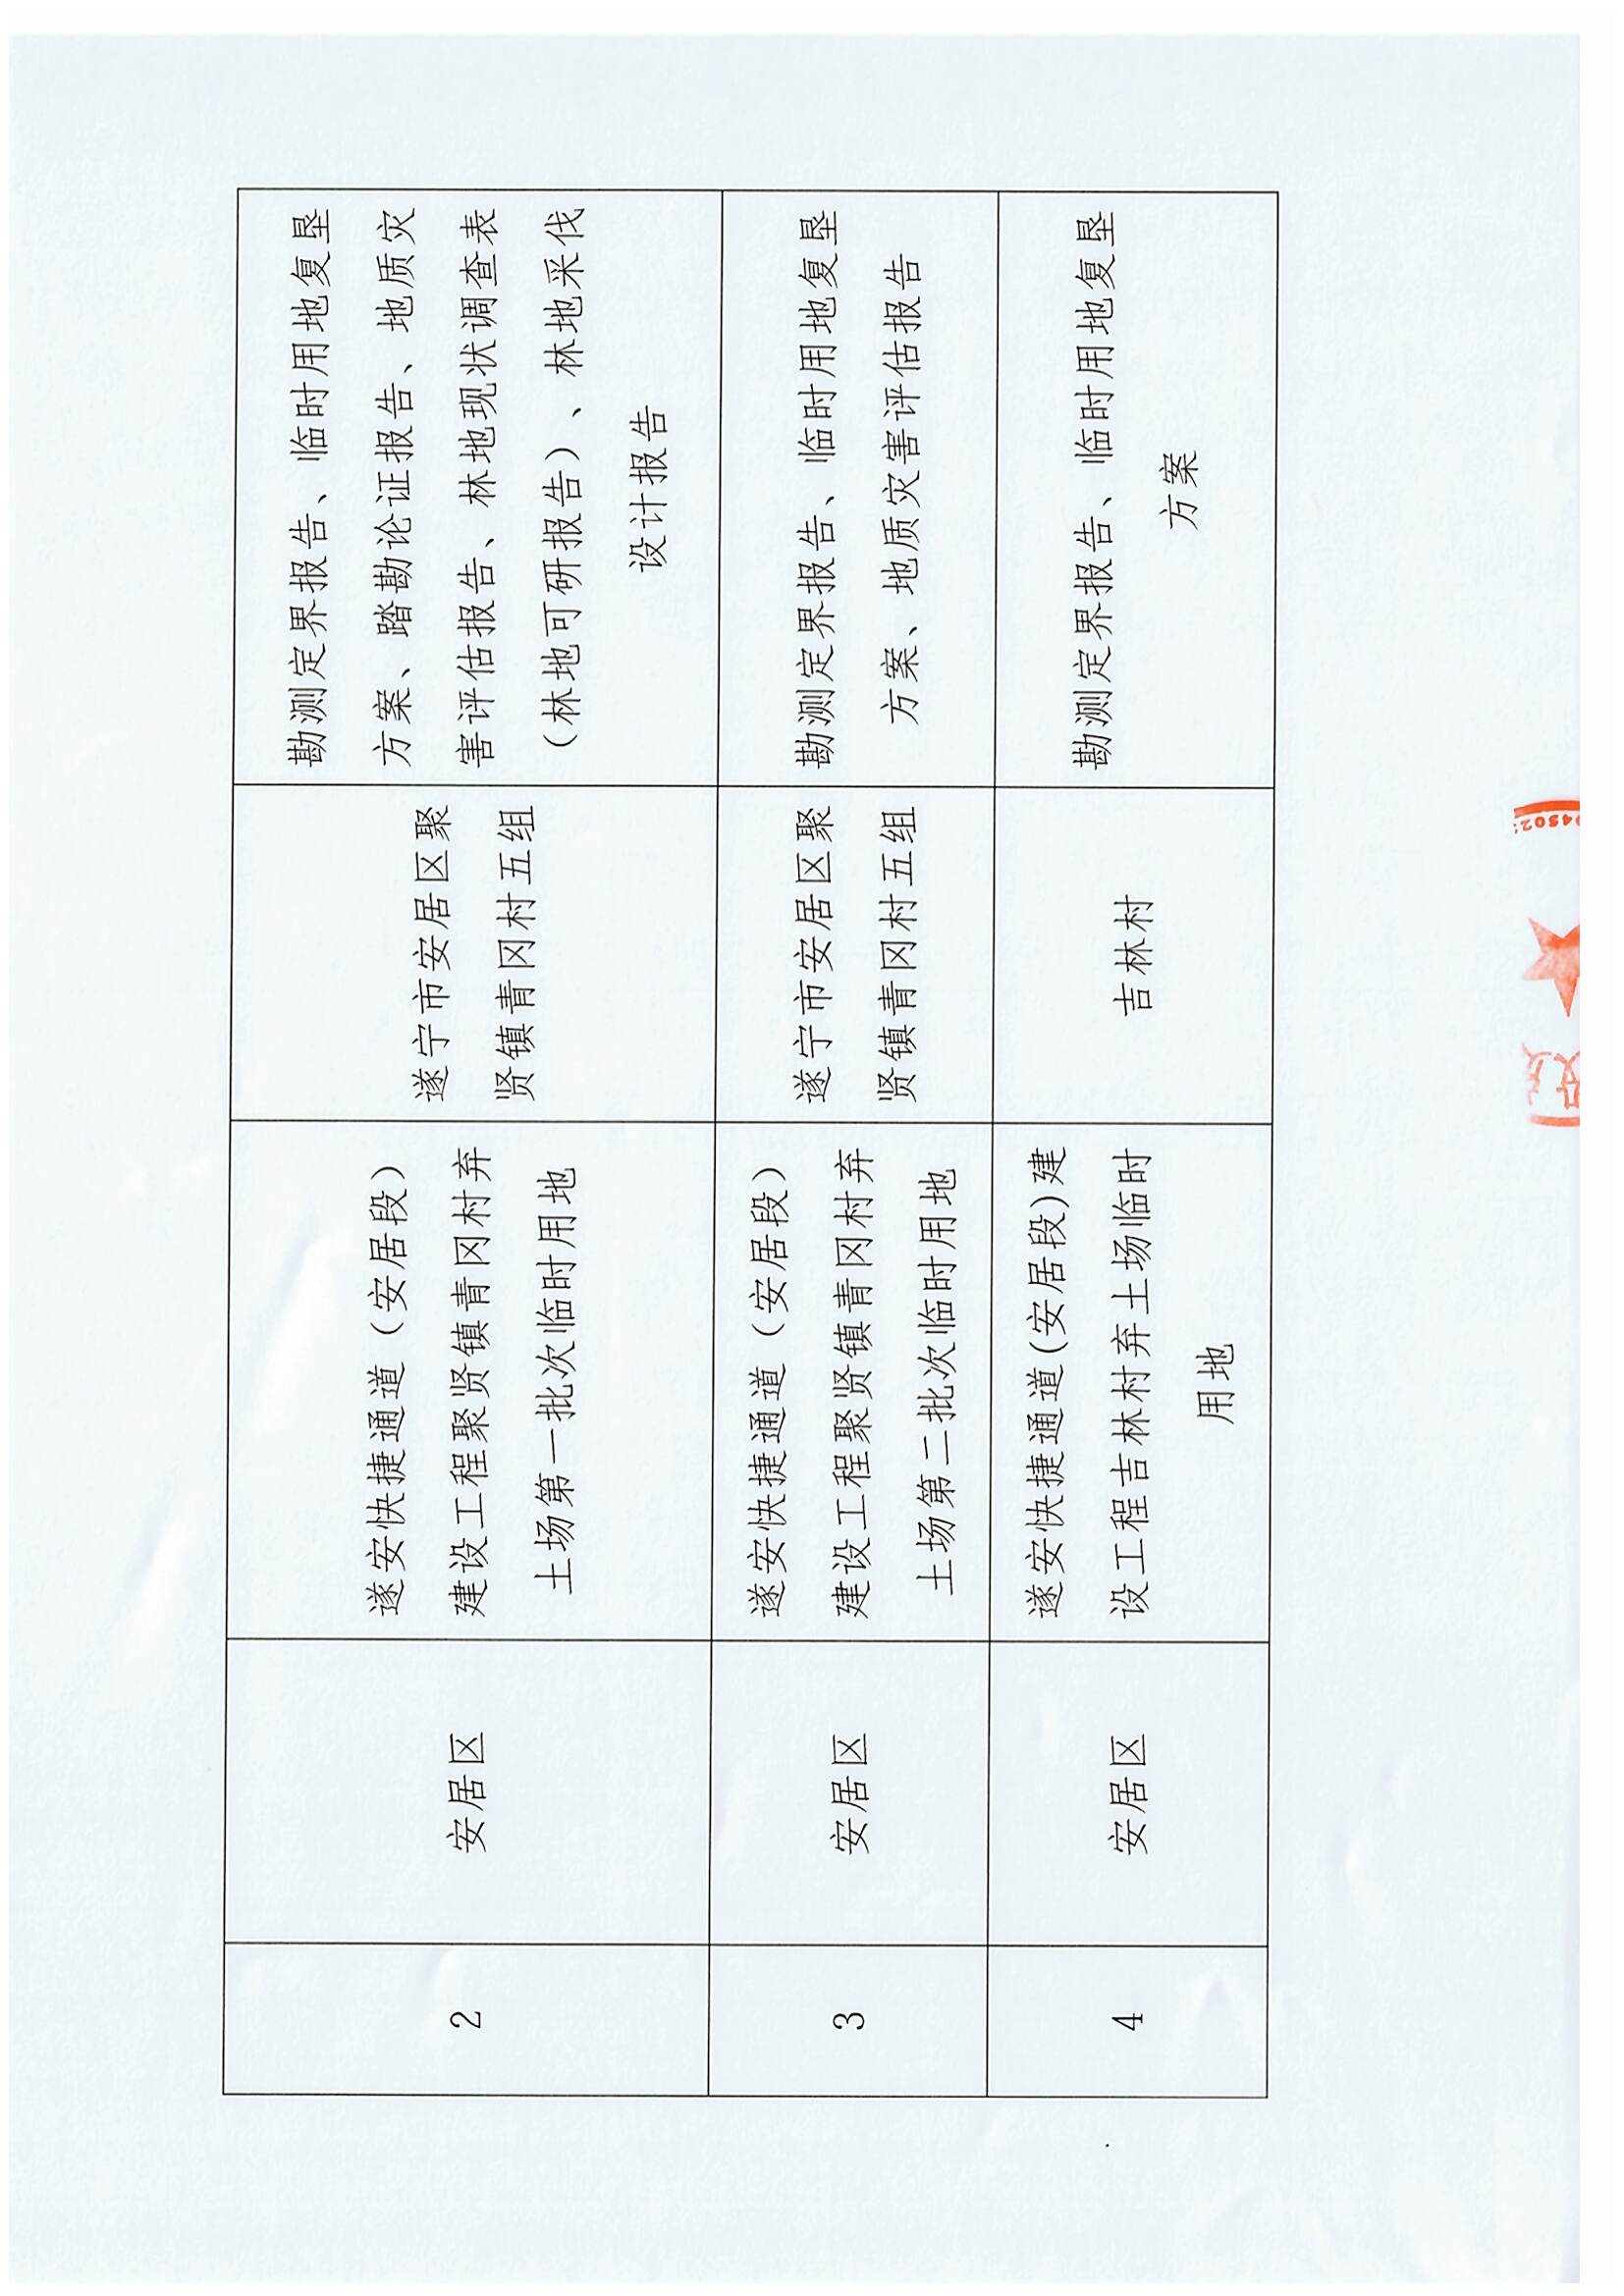 2
安居区
遂安快捷通道（安居段）
建设工程聚贤镇青冈村弃
土场第一批次临时用地
遂宁市安居区聚
贤镇青冈村五组
勘测定界报告、临时用地复垦
方案、踏勘论证报告、地质灾
害评估报告、林地现状调查表
（林地可研报告）、林地采伐
设计报告
3
安居区
遂安快捷通道（安居段）
建设工程聚贤镇青冈村弃
土场第二批次临时用地
遂宁市安居区聚
贤镇青冈村五组
勘测定界报告、临时用地复垦
方案、地质灾害评估报告
4
安居区
遂安快捷通道(安居段)建
设工程吉林村弃土场临时
用地
吉林村
勘测定界报告、临时用地复垦
方案